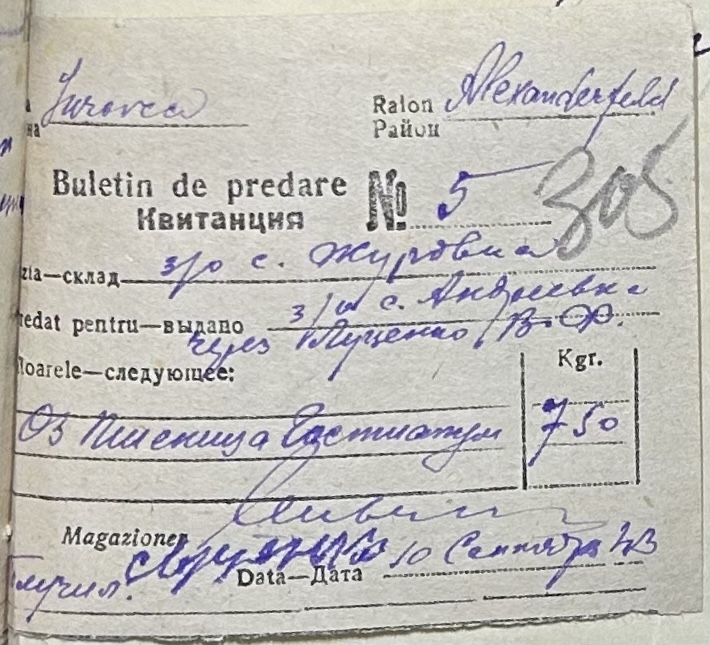 Jurovca Raion Alexanderfeld
на Район
Buletin de predare № 5
Квитанция 305
zia—склад з/о с. Журовка
redat pentru—выдано з/о с. Андреевка
через Луценко В.Ф.
toarele—следующее: Kgr.
Оз Пшеница 750
Magazioner
Data—Дата 10 Сентября 43